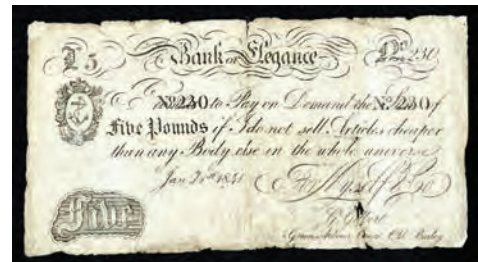 £5 Bank of Elegance No 230
I Promise to Pay on Demand the Sum of
No 230 No 230
Five Pounds if I do not sell Articles cheaper
than any Body else in the whole universe
Jan 1831 For Myself & Co
Five